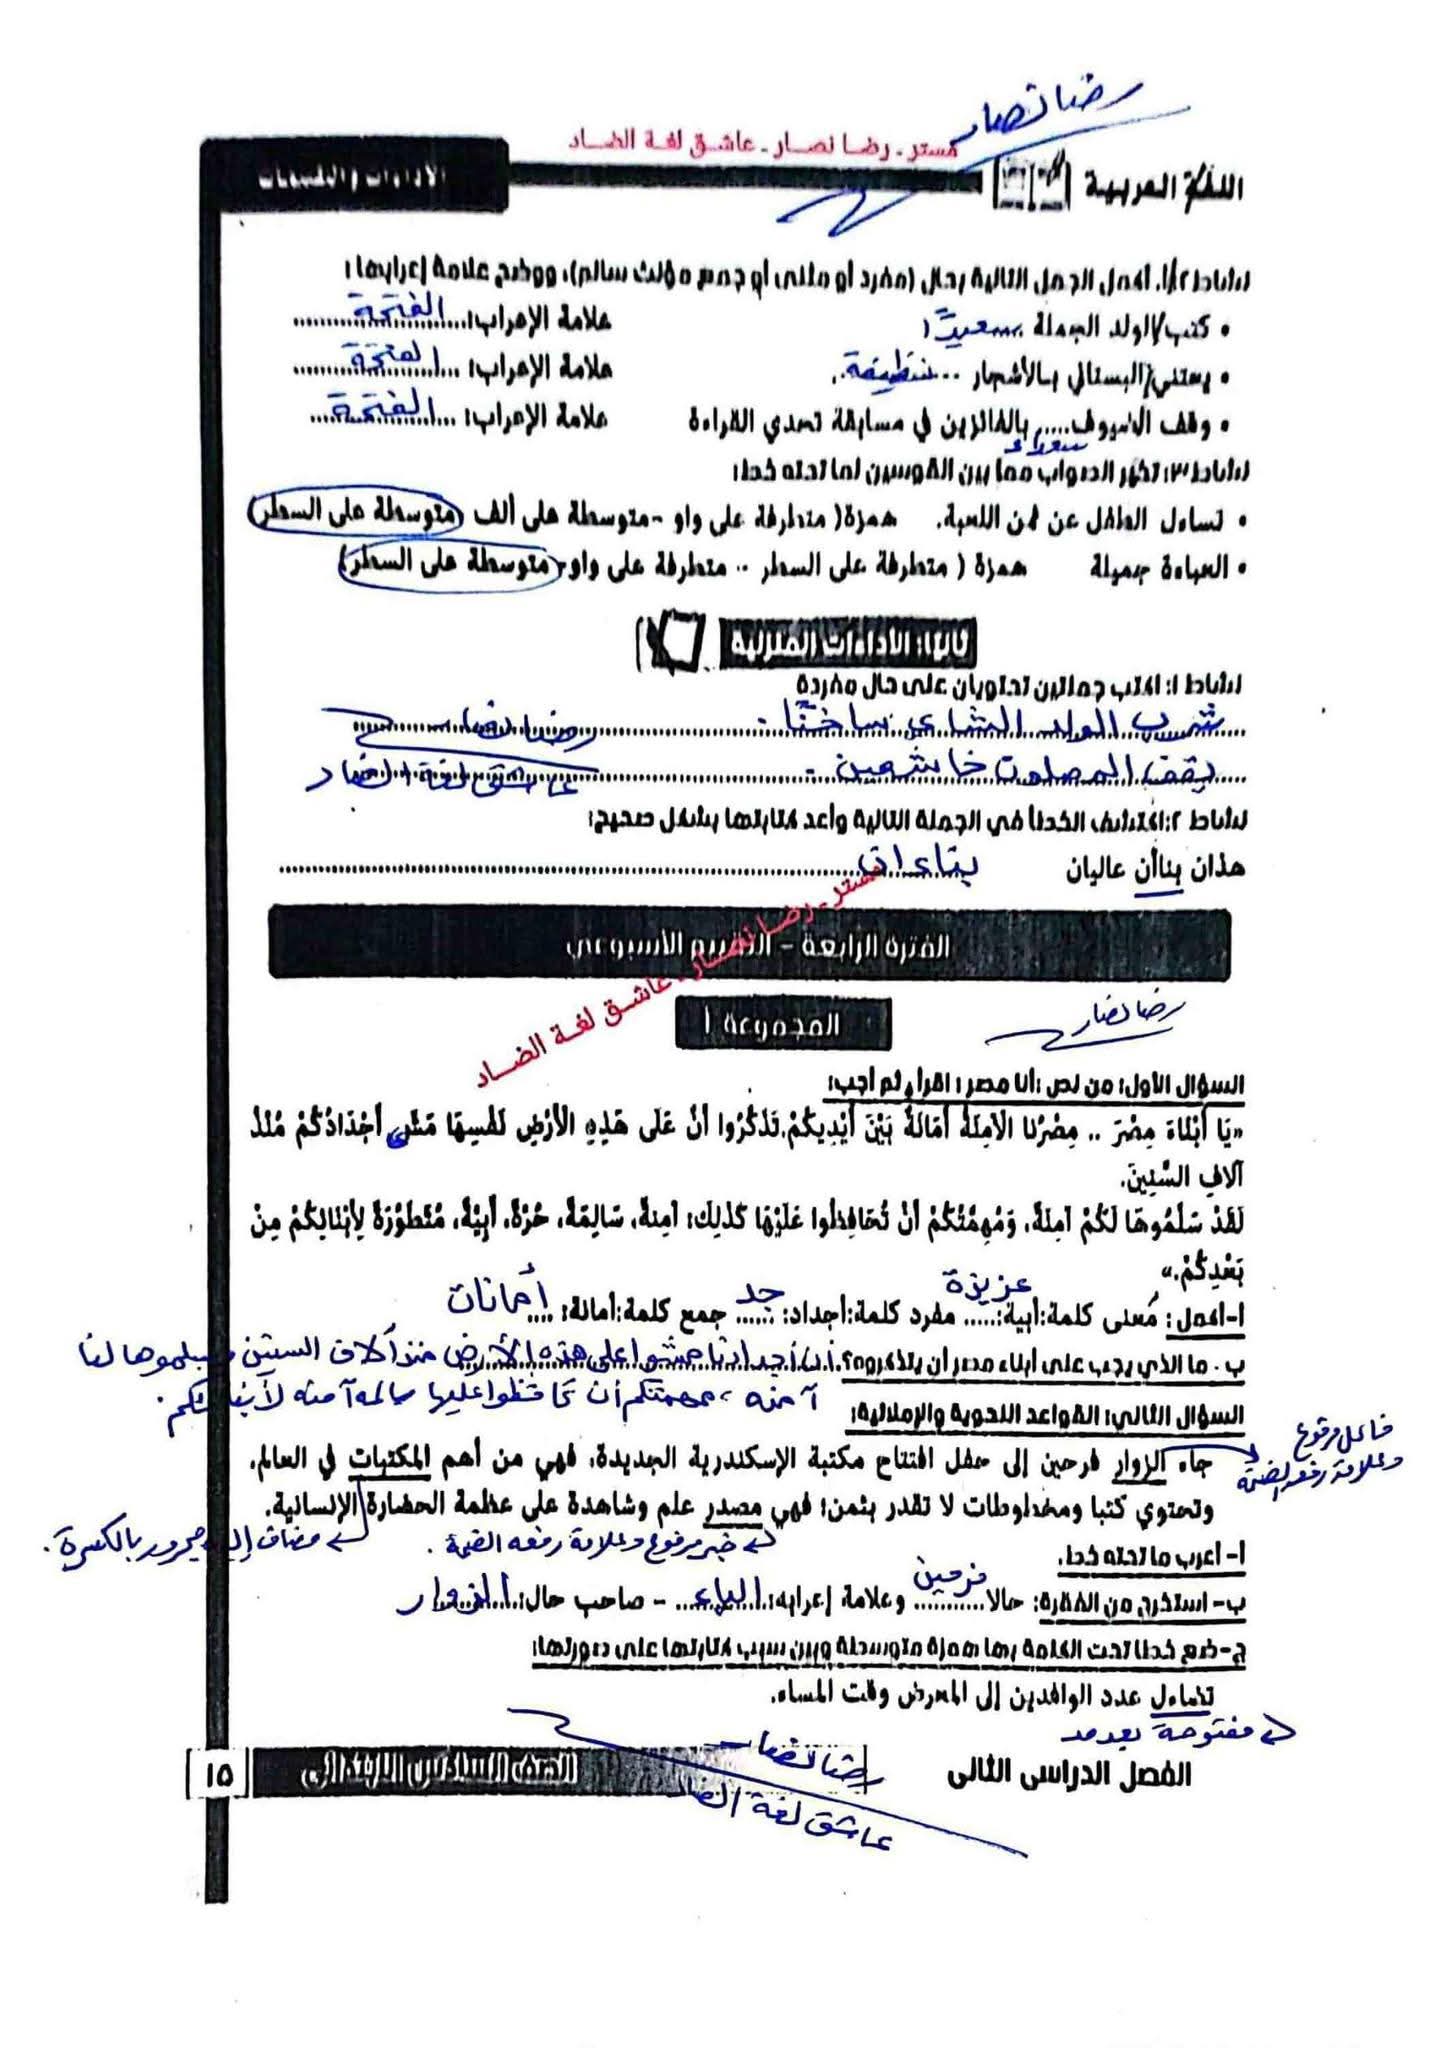 رضا نصار
مستر - رضا نصار - عاشق لغة الضاد
اللغة العربية
الأداءات والتقييمات
نشاط ٢: أكمل الجمل التالية بحال (مفرد أو مثنى أو جمع مؤنث سالم)، ووضح علامة إعرابها:
• كتب الولد الجملة سعيدًا علامة الإعراب: الفتحة
• يعتني البستاني بالأشجار نظيفة. علامة الإعراب: الفتحة
• وقف الضيوف..... بالفائزين في مسابقة تحدي القراءة علامة الإعراب: الفتحة
سعداء
نشاط ٣: تخير الصواب مما بين القوسين لما تحته خط:
• تساءل الطفل عن ثمن اللعبة. همزة ( متطرفة على واو - متوسطة على ألف متوسطة على السطر)
• العباءة جميلة همزة ( متطرفة على السطر - متطرفة على واو - متوسطة على السطر)
ثانيا: الأداءات المنزلية
نشاط ١: اكتب جملتين تحتويان على حال مفردة
شرب الولد الشاي ساخنًا. رضا نصار
يقف المصلون خاشعين. عاشق لغة الضاد
نشاط ٢: اكتشف الخطأ في الجملة التالية وأعد كتابتها بشكل صحيح:
هذان بناأن عاليان بناءان
مستر - رضا نصار - عاشق لغة الضاد
الفترة الرابعة - التقييم الأسبوعي
المجموعة ١
رضا نصار
السؤال الأول: من نص :أنا مصر: اقرأ، ثم أجب:
«يَا أَبْنَاءَ مِصْرَ .. مِصْرُنَا الآمِنَةُ أَمَانَةٌ بَيْنَ أَيْدِيكُمْ.تَذَكَّرُوا أَنَّ عَلَى هَذِهِ الأَرْضِ نَفْسِهَا مَشَى أَجْدَادُكُمْ مُنْذُ
آلافِ السِّنِينَ.
لَقَدْ سَلَّمُوهَا لَكُمْ آمِنَةً، وَمُهِمَّتُكُمْ أَنْ تُحَافِظُوا عَلَيْهَا كَذَلِكَ: آمِنَةً، سَالِمَةً، حُرَّةً، أَبِيَّةً، مُتَطَوِّرَةً لِأَبْنَائِكُمْ مِنْ
بَعْدِكُمْ.»
أ-أكمل: مُعنى كلمة:أبية: عزيزة مفرد كلمة:أجداد: جد جمع كلمة:أمانة: أمانات
ب- ما الذي يجب على أبناء مصر أن يتذكروه؟ أن أجدادنا مشوا على هذه الأرض منذ آلاف السنين وسلموها لنا
آمنه، مهمتكم أن تحافظوا عليها سالمه آمنه لأبنائكم.
السؤال الثاني: القواعد النحوية والإملائية:
فاعل مرفوع
وعلامة رفعه الضمة
جاء الزوار فرحين إلى حفل افتتاح مكتبة الإسكندرية الجديدة، فهي من أهم المكتبات في العالم،
وتحتوي كتبا ومخطوطات لا تقدر بثمن؛ فهي مصدر علم وشاهدة على عظمة الحضارة الإنسانية.
خبر مرفوع وعلامة رفعه الضمة.
مضاف إليه مجرور بالكسرة.
أ- أعرب ما تحته خط.
ب- استخرج من الفقرة: حالا فرحين وعلامة إعرابه: الياء - صاحب حال: الزوار
ج-ضع خطا تحت الكلمة بها همزة متوسطة وبين سبب كتابتها على صورتها:
تضاءل عدد الوافدين إلى المعرض وقت المساء.
مفتوحة بعد مد
الفصل الدراسى الثانى
الصف السادس الابتدائى
١٥
رضا نصار
عاشق لغة الضاد